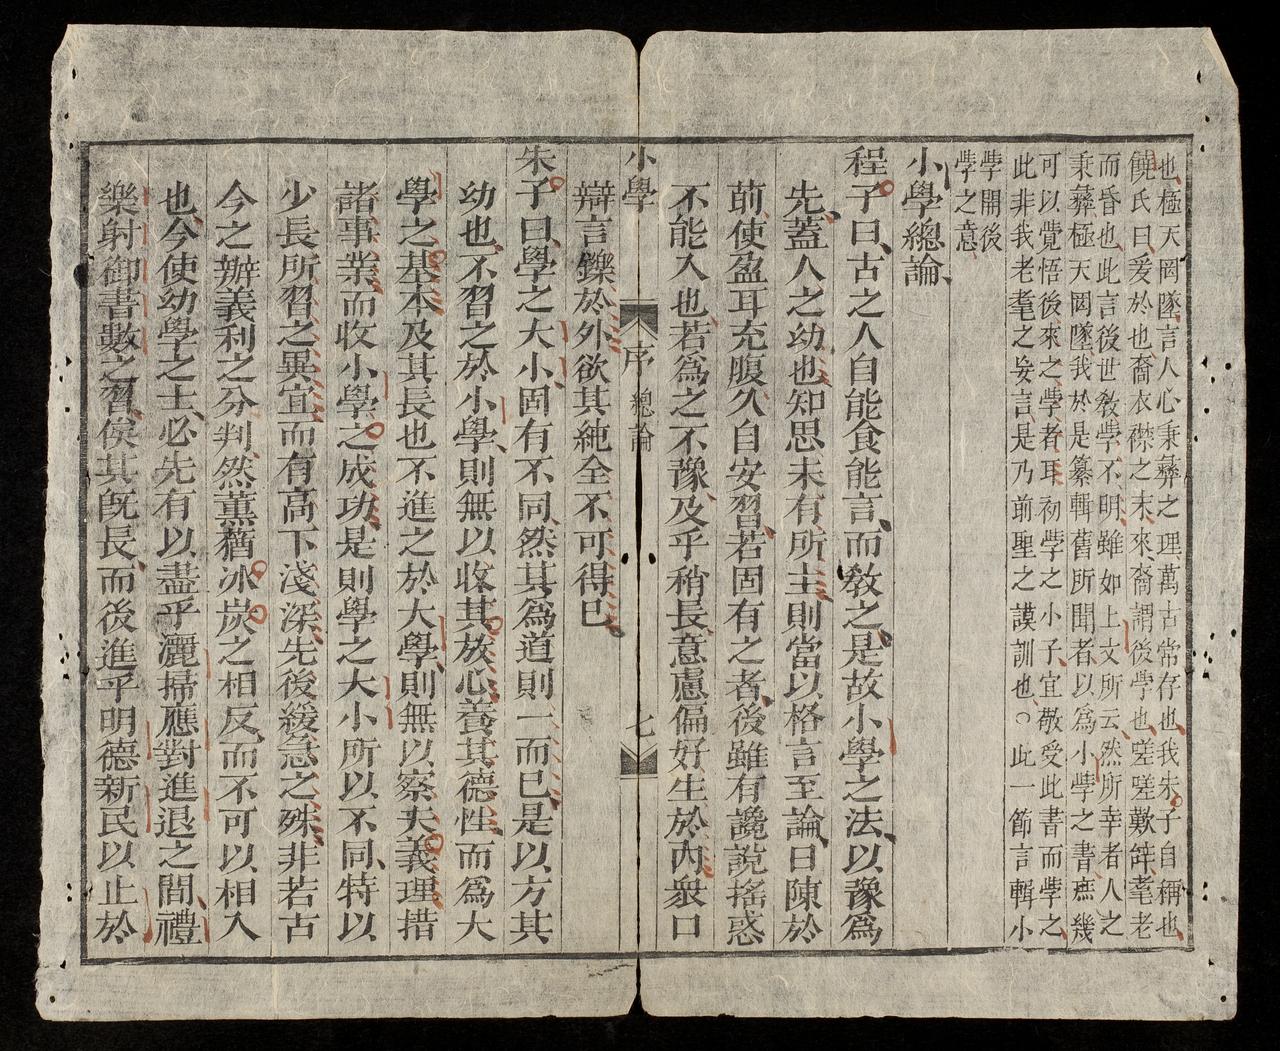 也極天罔墜言人心秉彝之理萬古常存也我朱子自稱也
饒氏曰爰於也裔衣襟之末來裔謂後學也嗟嗟歎辭耄老
而昏也此言後世教學不明雖如上文所云然所幸者人之
秉彝極天罔墜我於是纂輯舊所聞者以爲小學之書庶幾
可以覺悟後來之學者耳初學之小子宜敬受此書而學之
此非我老耄之妄言是乃前聖之謨訓也○此一節言輯小
學開後
學之意
小學總論
程子曰古之人自能食能言而敎之是故小學之法以豫爲
先蓋人之幼也知思未有所主則當以格言至論日陳於
前使盈耳充腹久自安習若固有之者後雖有讒說搖惑
不能入也若爲之不豫及乎稍長意慮偏好生於內衆口
小學 序 總論 七
辯言鑠於外欲其純全不可得已
朱子曰學之大小固有不同然其爲道則一而已是以方其
幼也不習之於小學則無以收其放心養其德性而爲大
學之基本及其長也不進之於大學則無以察夫義理措
諸事業而收小學之成功是則學之大小所以不同特以
少長所習之異宜而有高下淺深先後緩急之殊非若古
今之辨義利之分判然薰蕕冰炭之相反而不可以相入
也今使幼學之士必先有以盡乎灑掃應對進退之間禮
樂射御書數之習俟其旣長而後進乎明德新民以止於